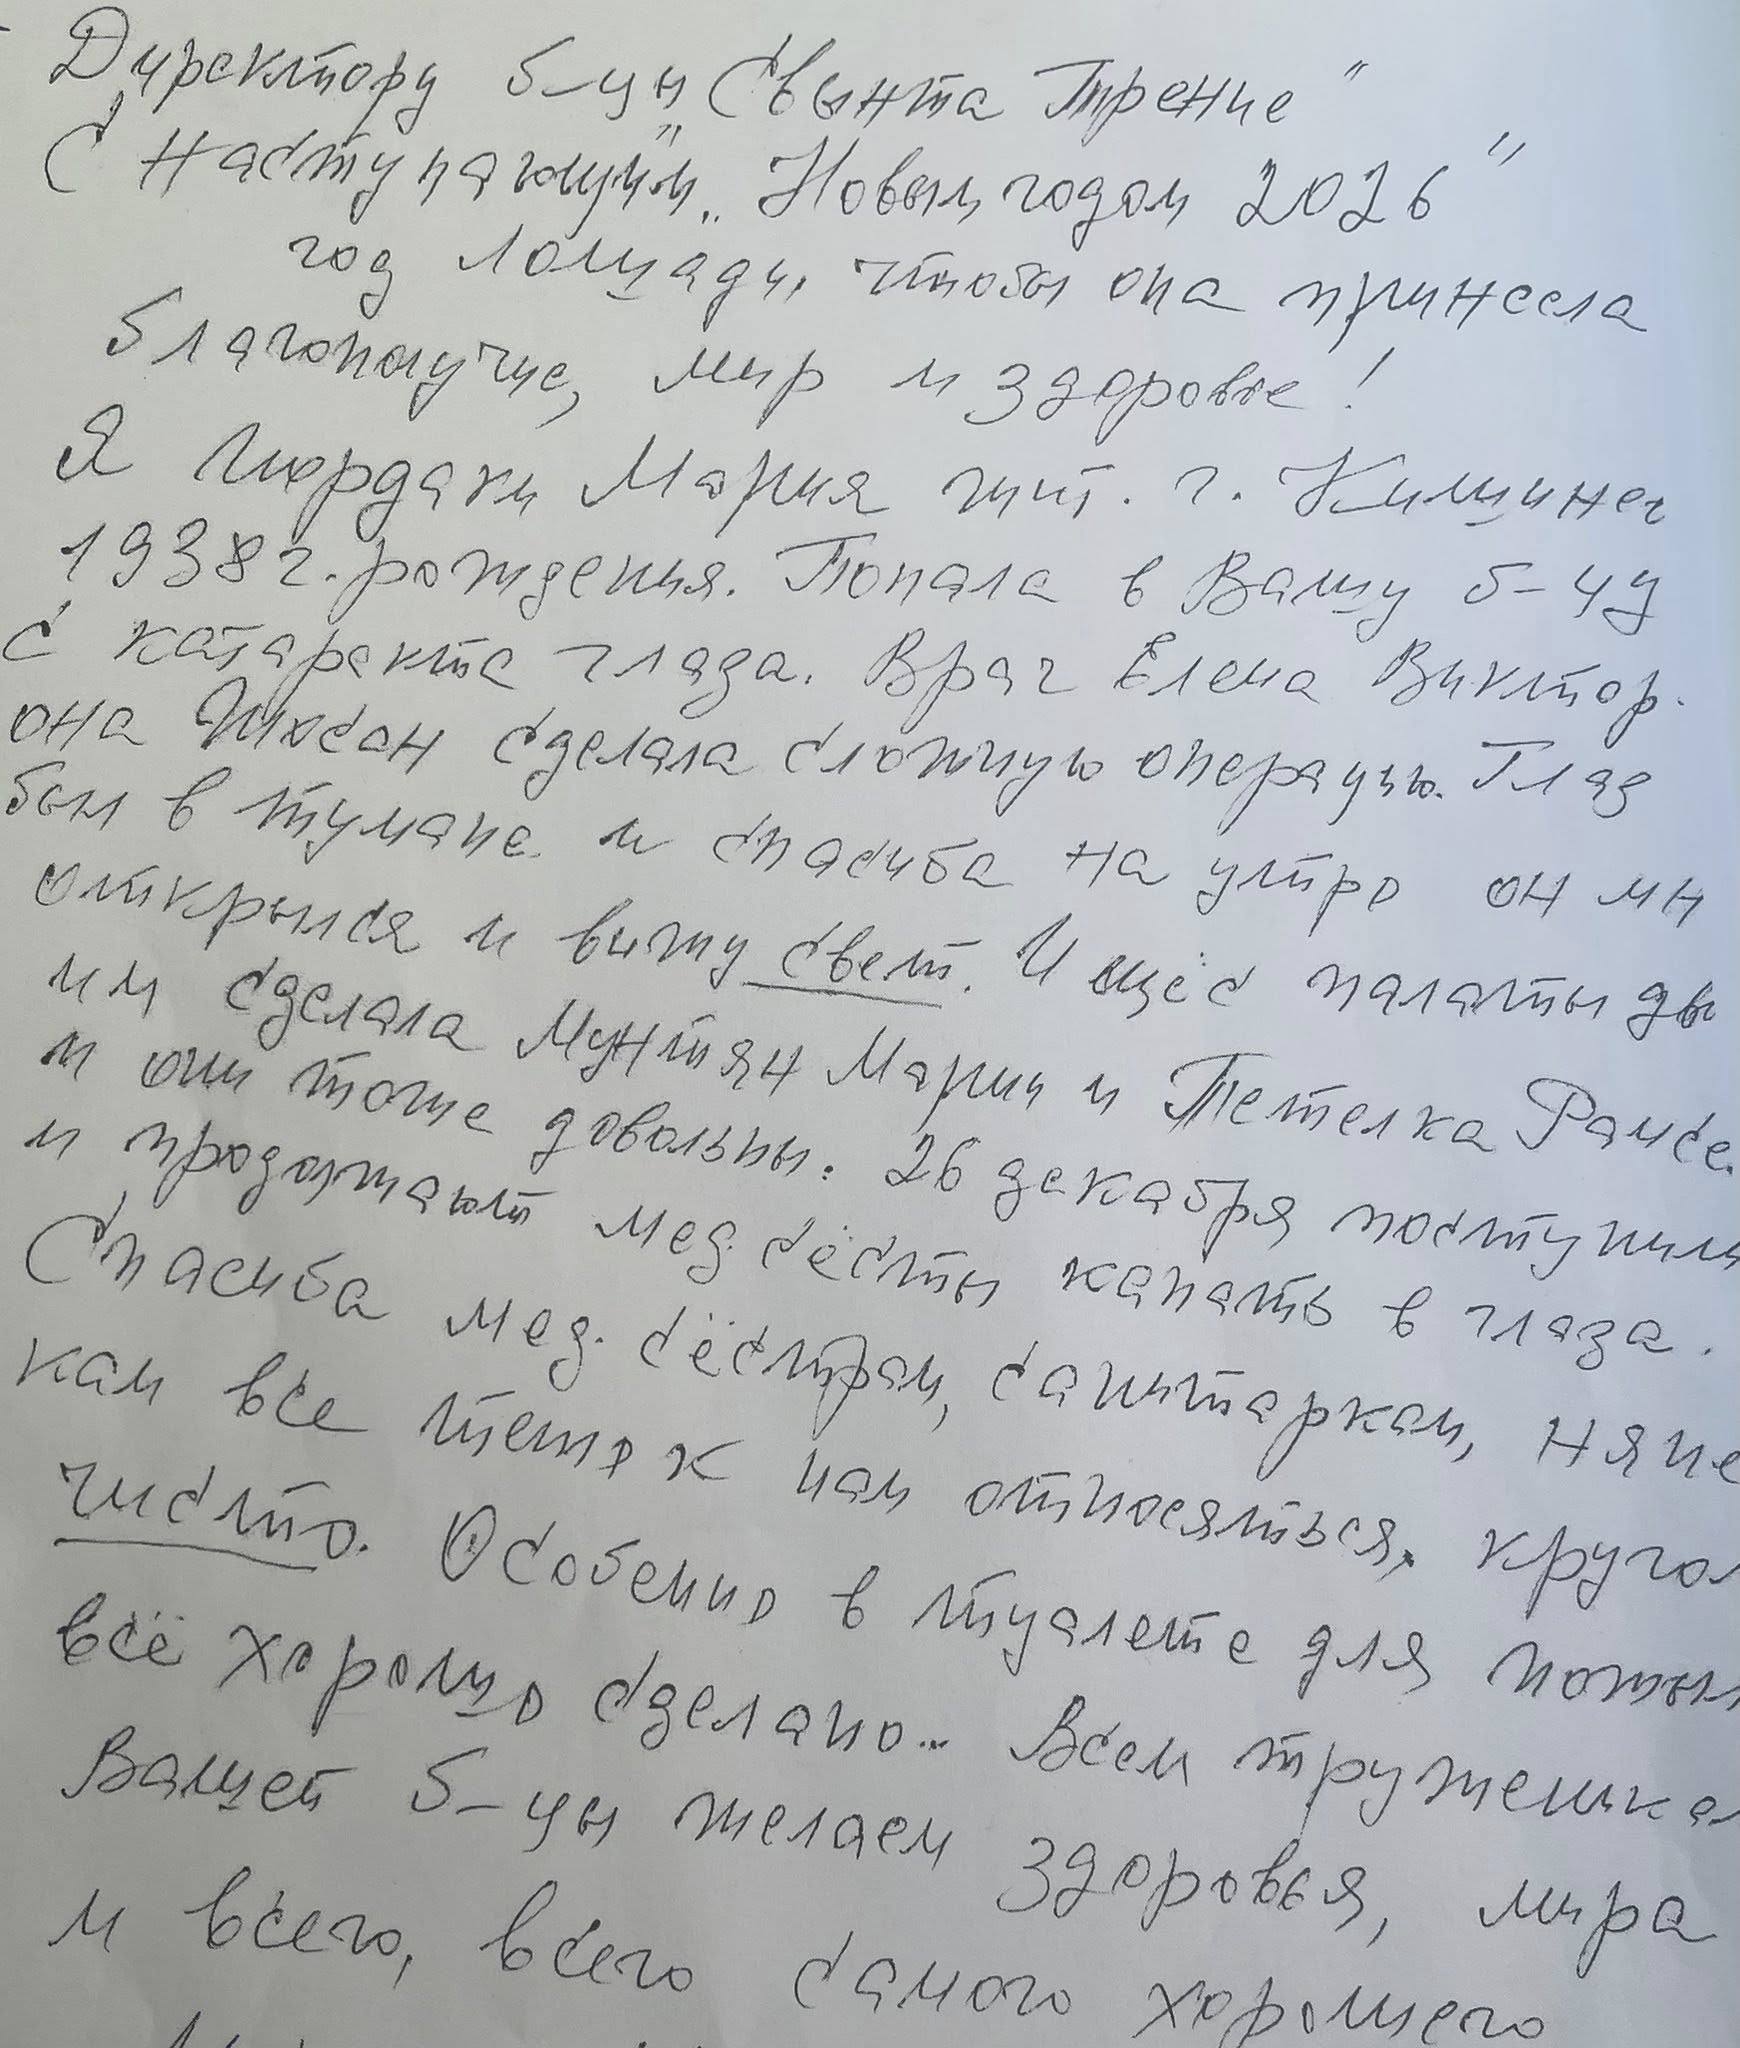 Директору б-цы Свынта Трение"
С Наступающим „Новым годом 2026"
год лошади, чтобы она принесла
благополучие, мир и здоровье!
Я Гюрдаки Мария жит. г. Кишинев
1938г. рождения. Попала в Вашу б-цу
с катаракте глаза. Врач Елена Виктор.
она сделала сложную операцию. Глаз
был в тумане и спасиба на утро он мн
открылся и вижу свет. И ещё с палаты дв
им сделала Мунтян Марии и Петелка Раисе.
и они тоже довольны. 26 декабря поступили
и продолжают мед. сёсты капать в глаза.
Спасиба мед. сёстрам, санитаркам, няне
кам все тепло к нам относяться, кругом
чисто. Особенно в туалете для пожил
всё хорошо сделано.. Всем труженика
Вашей б-цы желаем здоровья, мира
и всего, всего самого хорошего